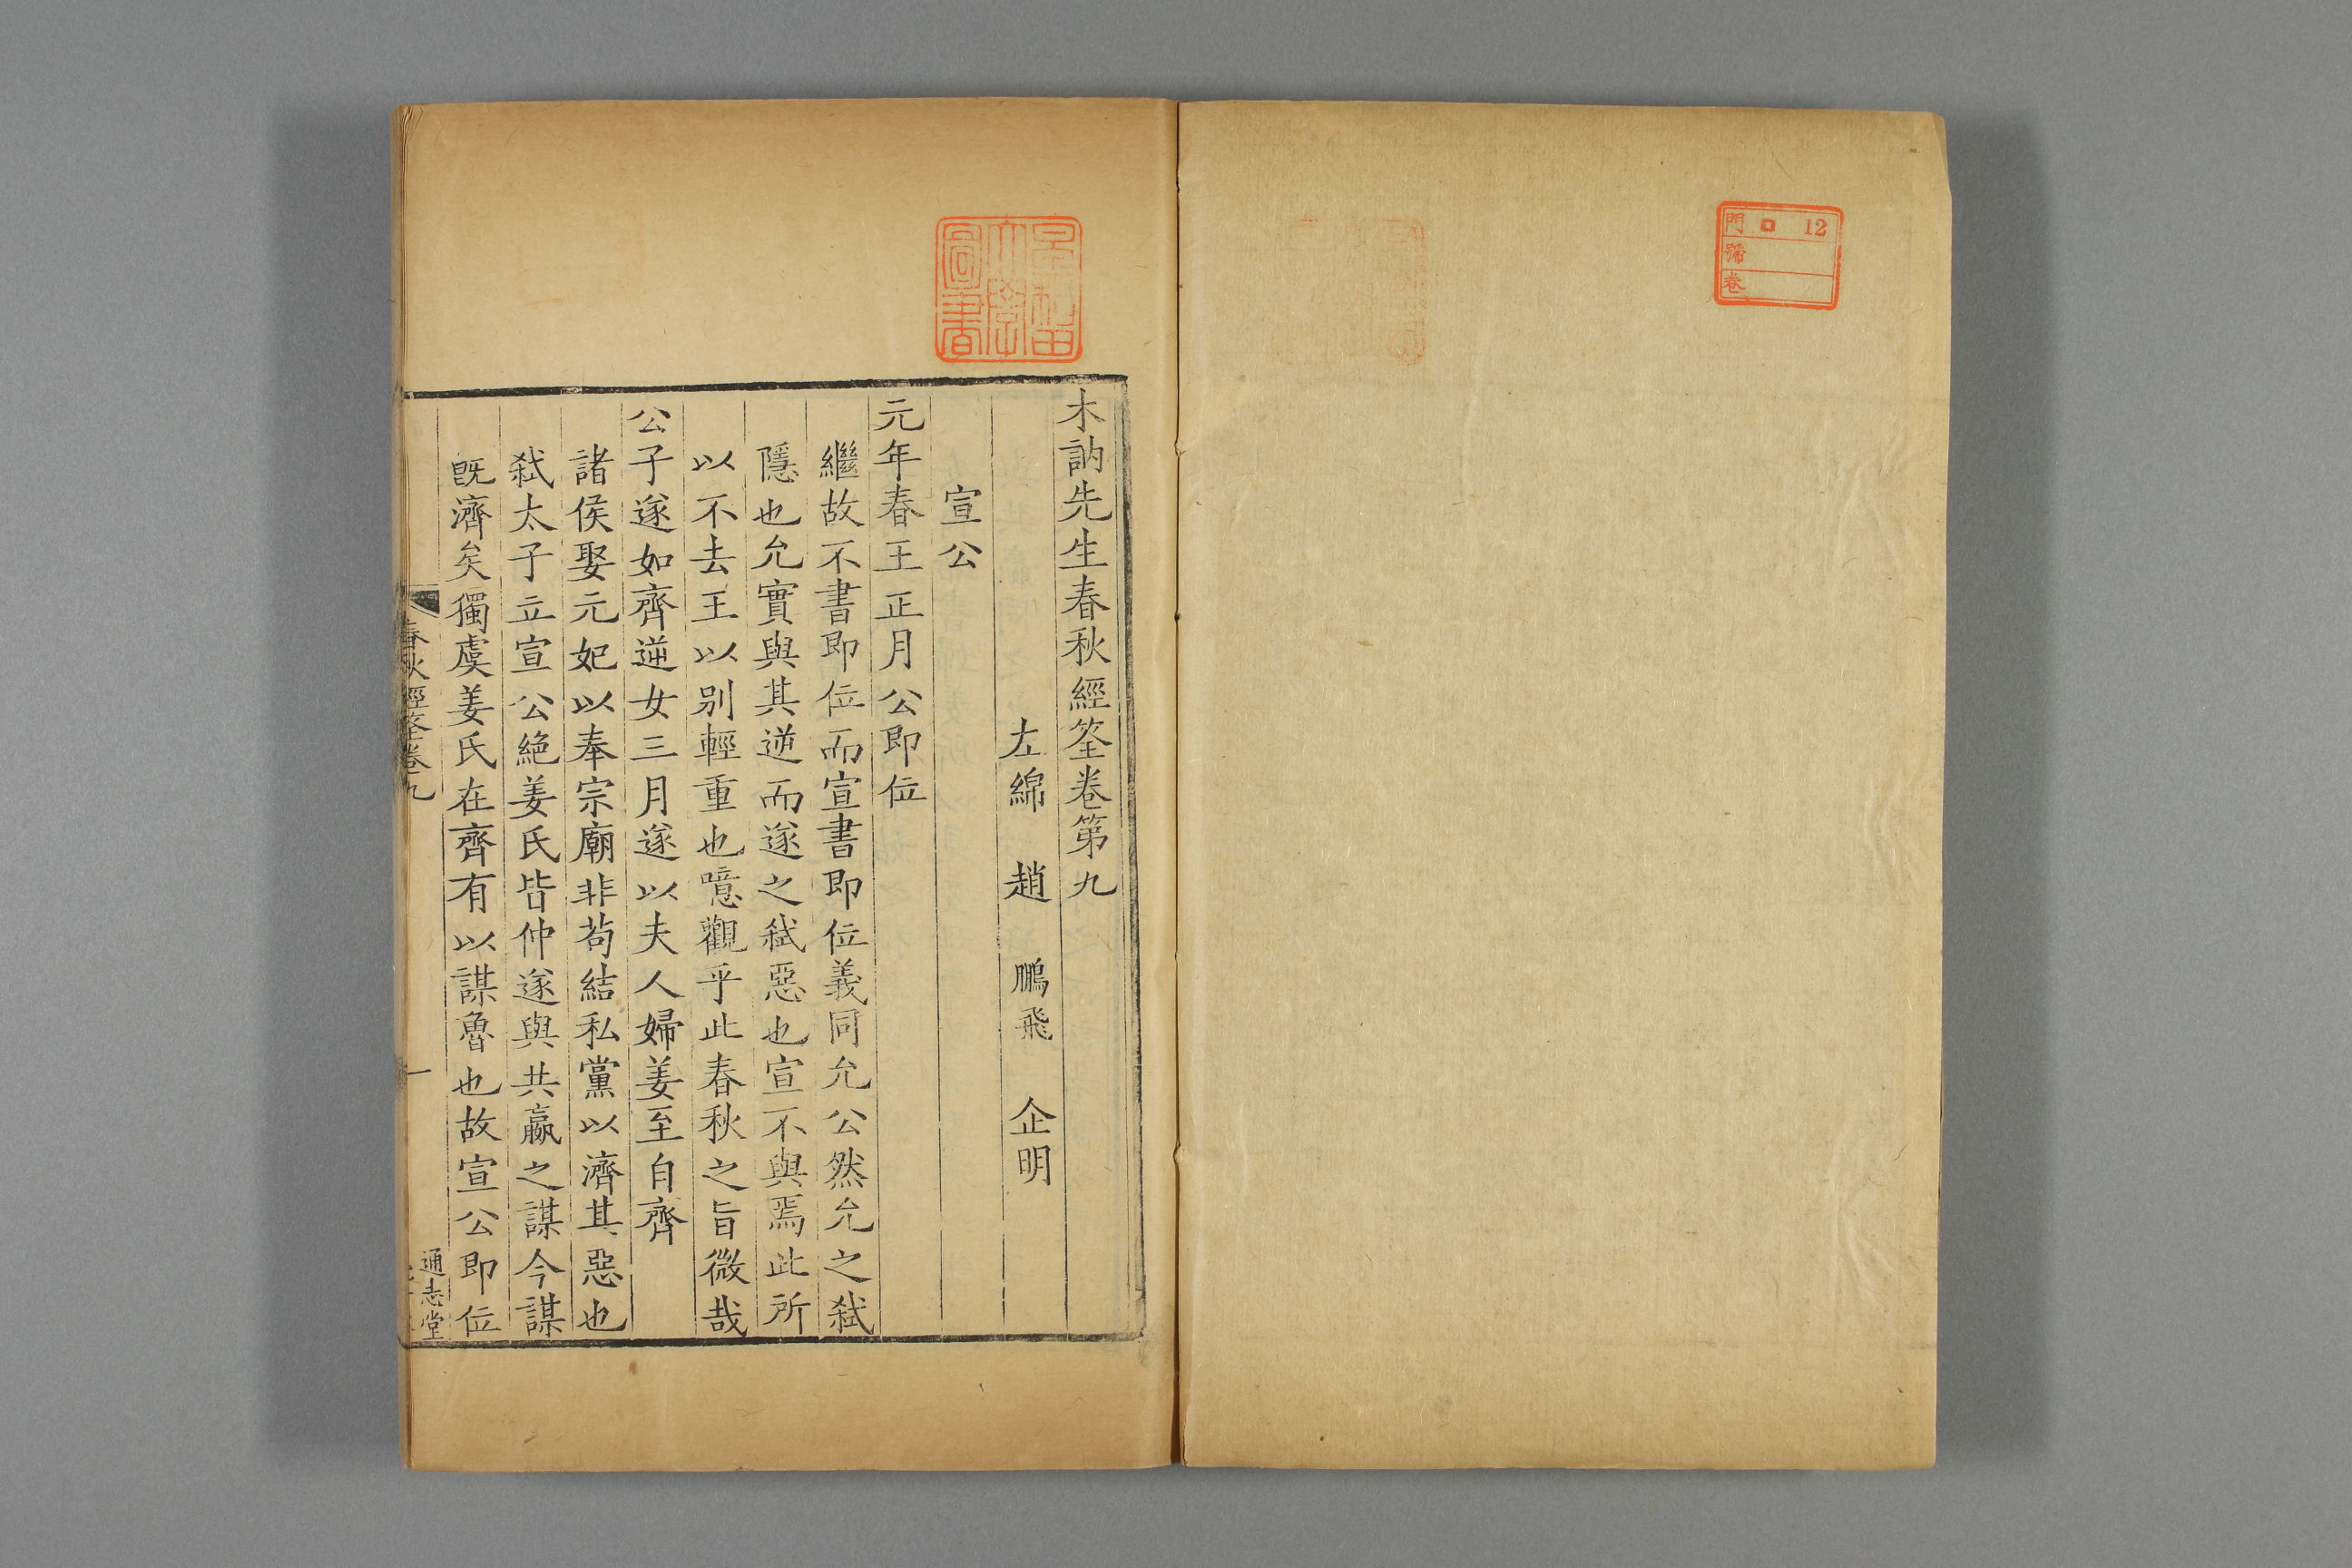 門 口 12
號
卷
早稻田
大學
圖書
木訥先生春秋經筌卷第九
左綿 趙 鵬飛 企明
宣公
元年春王正月公即位
繼故不書即位而宣書即位義同允公然允之弑
隱也允實與其逆而遂之弑惡也宣不與焉此所
以不去王以别輕重也噫觀乎此春秋之旨微哉
公子遂如齊逆女三月遂以夫人婦姜至自齊
諸侯娶元妃以奉宗廟非苟結私黨以濟其惡也
弑太子立宣公絶姜氏皆仲遂與共嬴之謀今謀
旣濟矣獨虞姜氏在齊有以謀魯也故宣公即位
春秋經筌卷九
一
通志堂